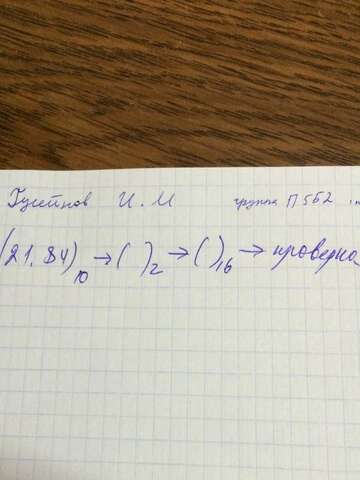 Гусейнов И. М группа П 5Б2
(21,84)₁₀ → ( )₂ → ( )₁₆ → проверка